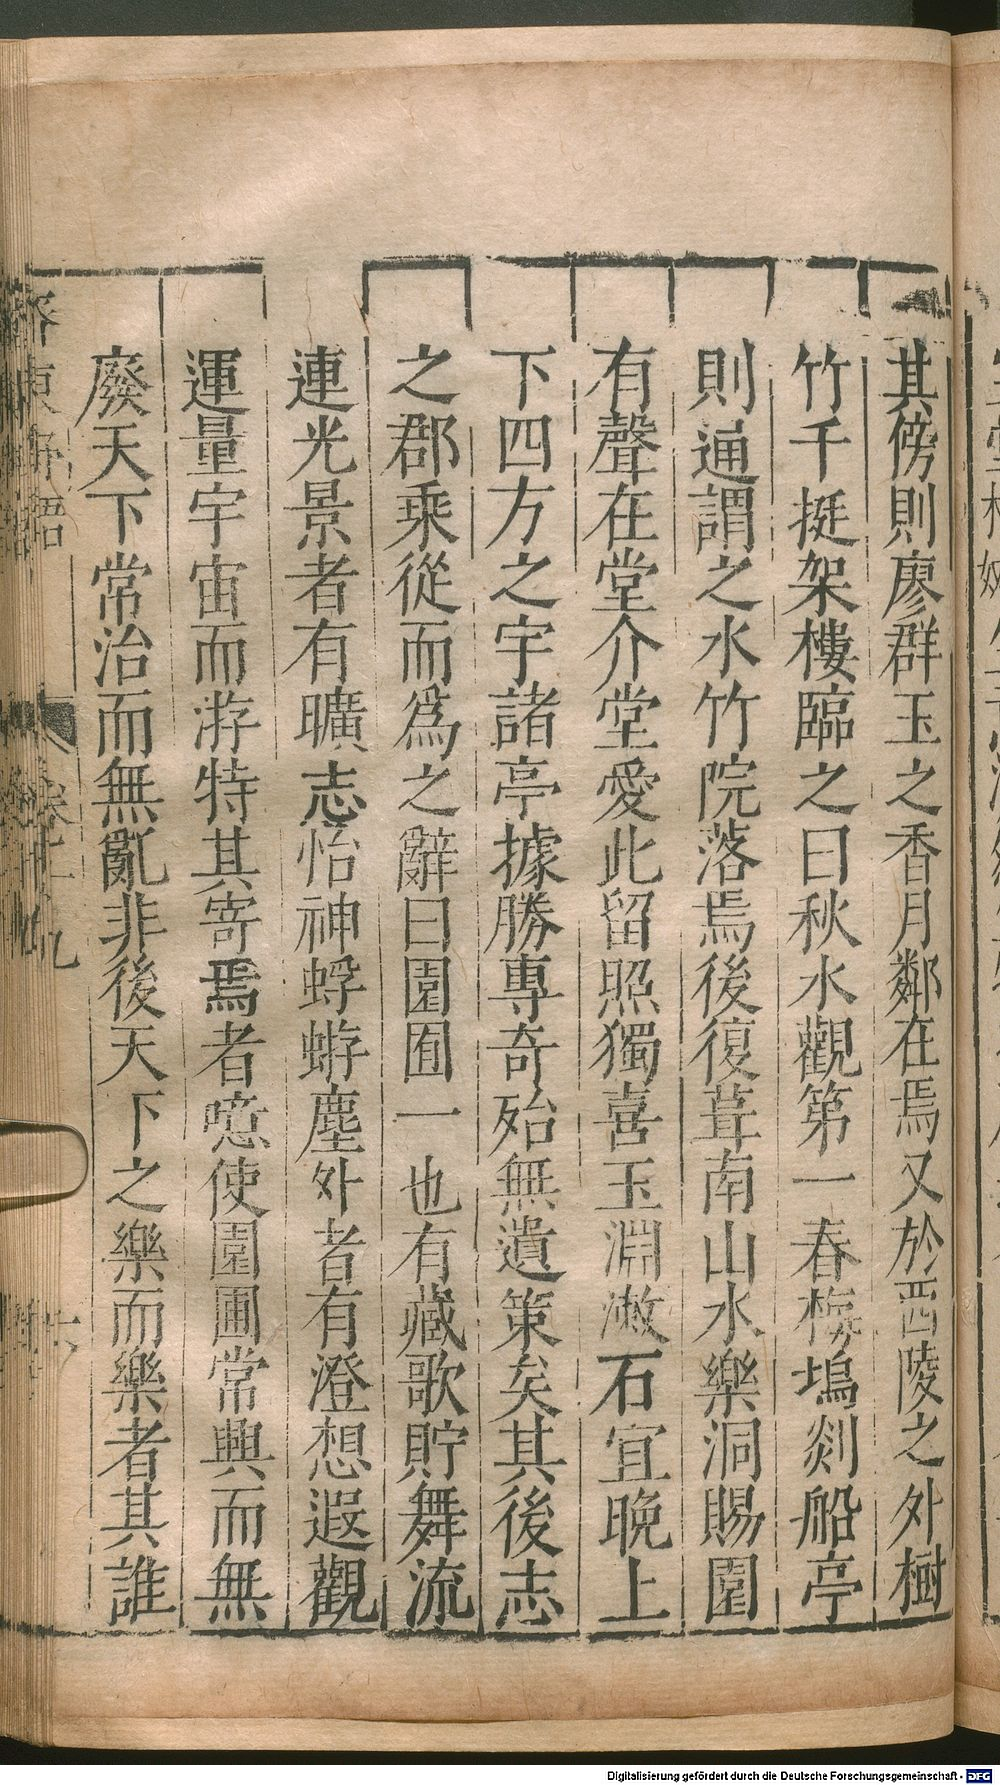 其傍則廖群玉之香月鄰在焉又於西陵之外樹
竹千挺架樓臨之曰秋水觀第一春梅塢剡船亭
則通謂之水竹院落焉後復葺南山水樂洞賜園
有聲在堂介堂愛此留照獨喜玉淵漱石宜晚上
下四方之宇諸亭據勝專奇殆無遺策矣其後志
之郡乘從而爲之辭曰園囿一也有藏歌貯舞流
連光景者有曠志怡神蜉蝣塵外者有澄想遐觀
運量宇宙而游特其寄焉者噫使園圃常興而無
廢天下常治而無亂非後天下之樂而樂者其誰
齊東野語
卷十九
Digitalisierung gefördert durch die Deutsche Forschungsgemeinschaft - DFG